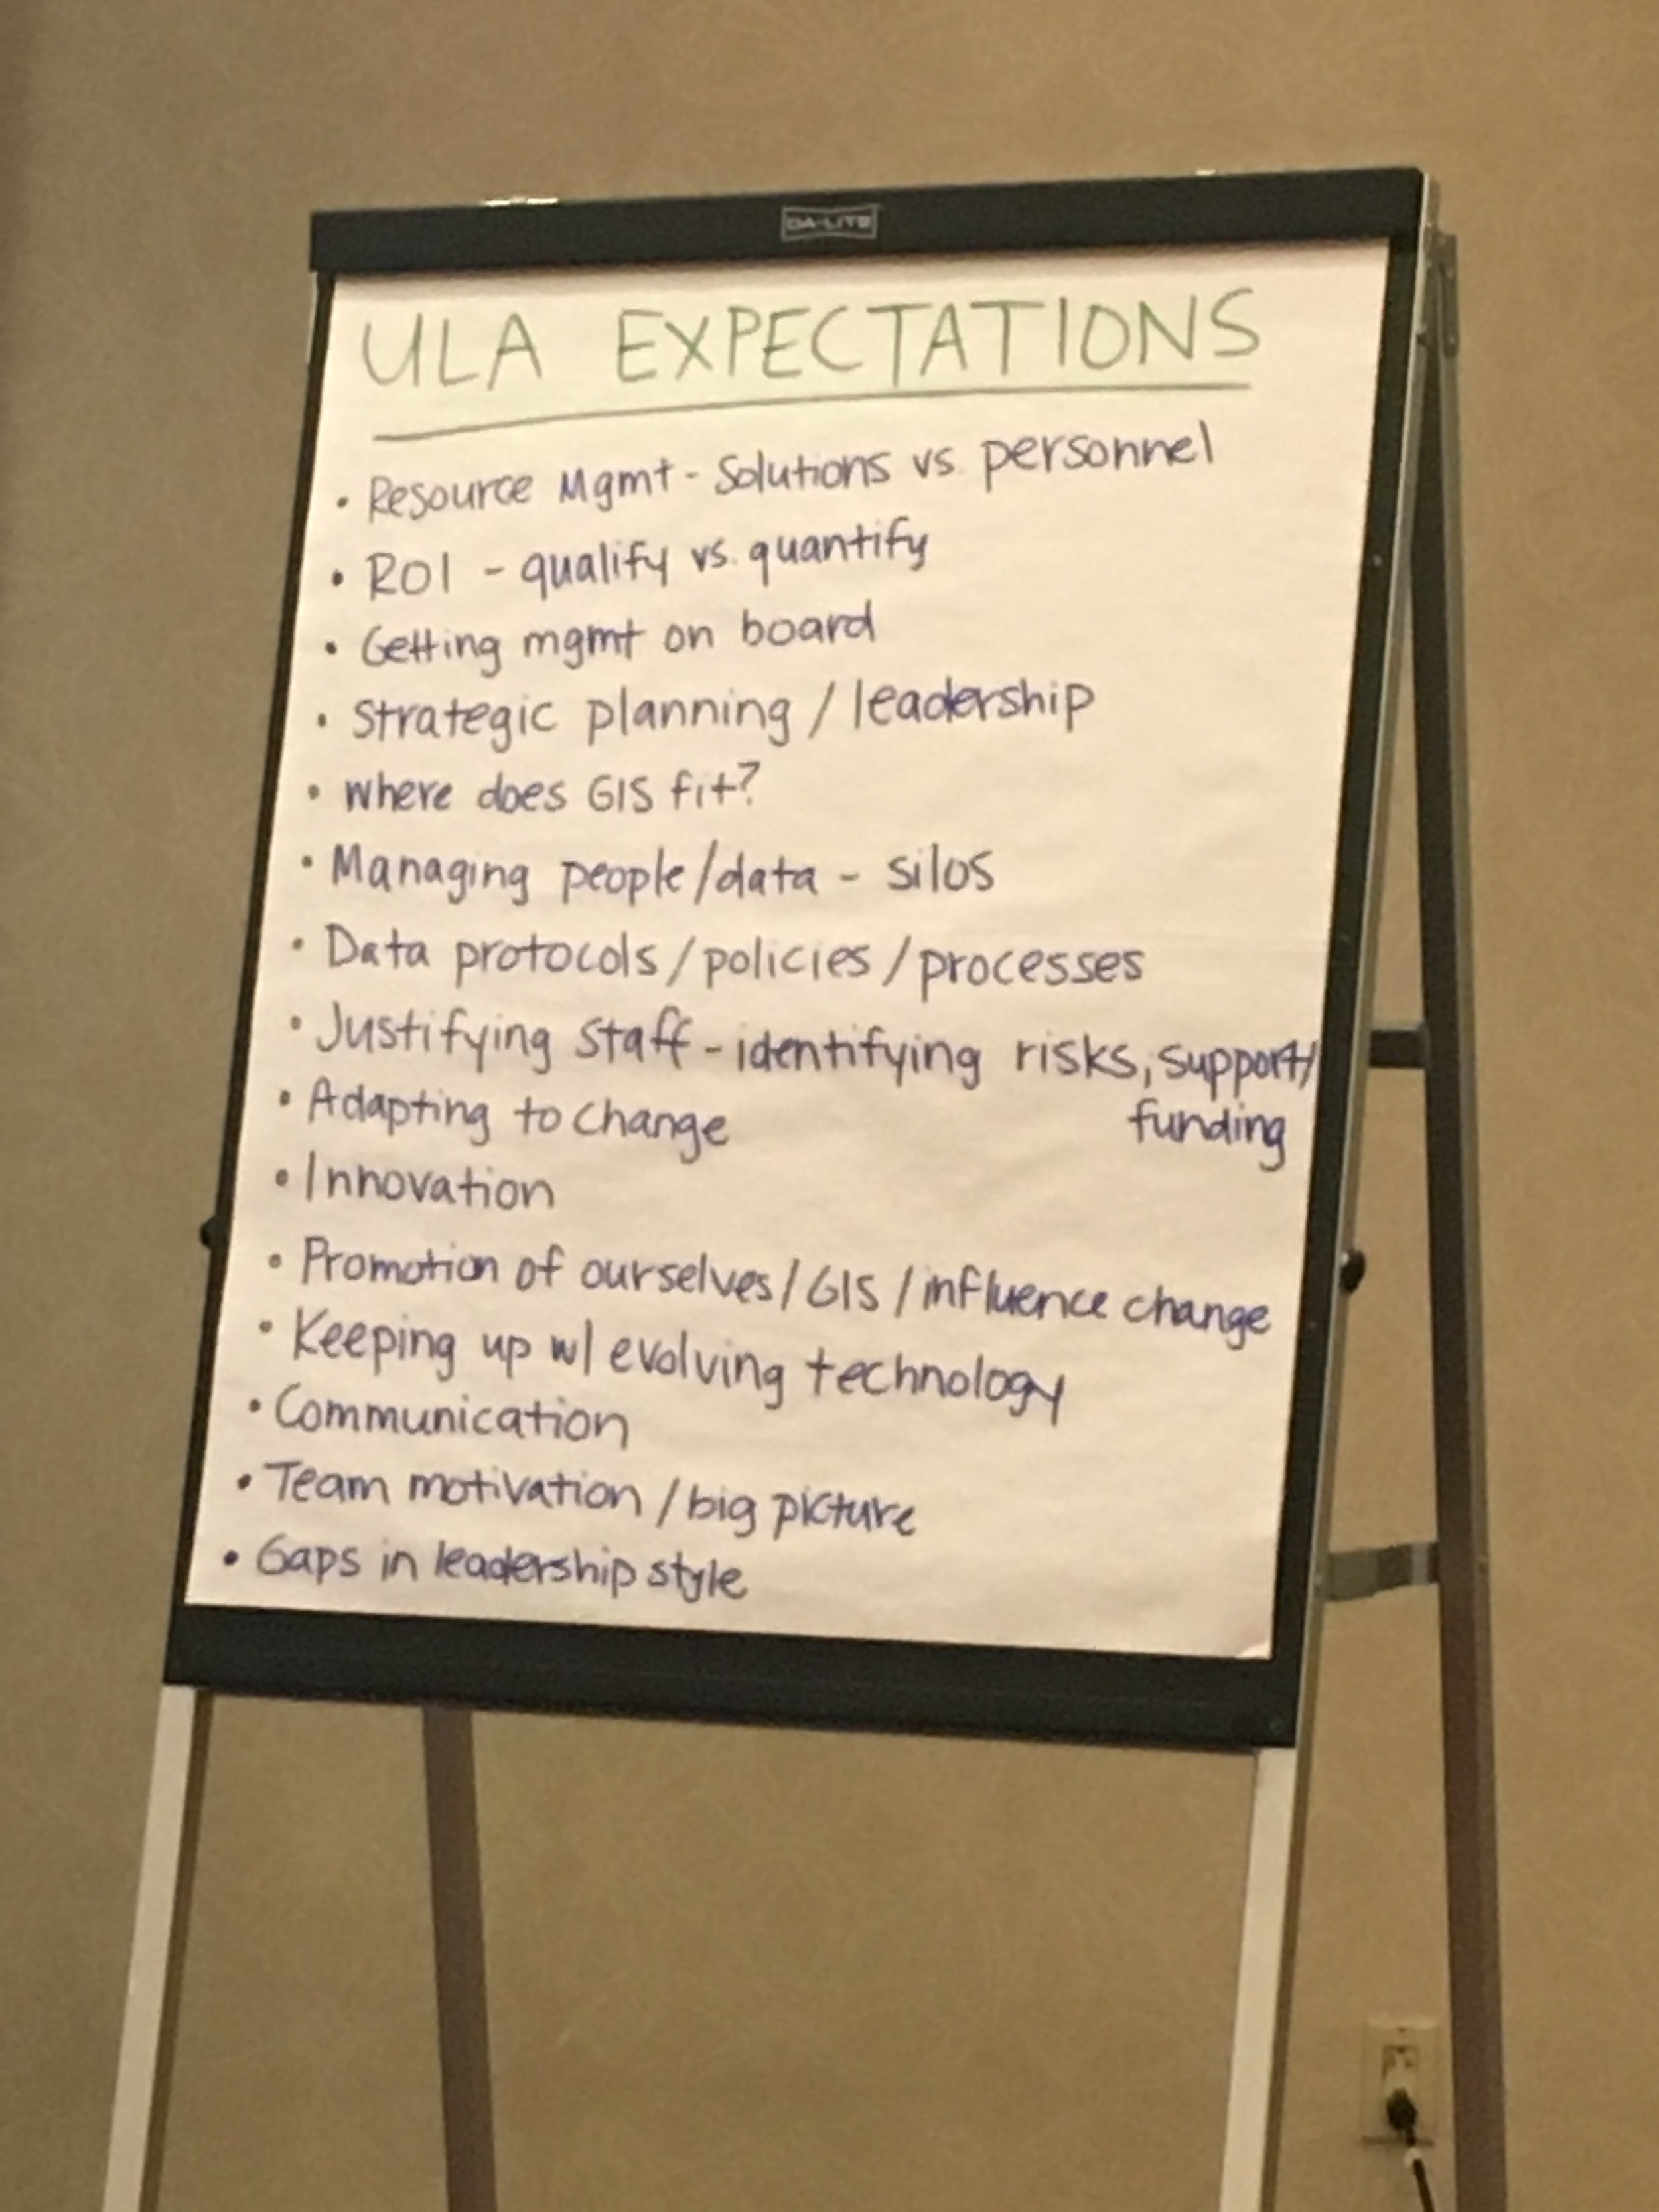 DA-LITE
ULA EXPECTATIONS
• Resource Mgmt - Solutions vs. personnel
• ROI - qualify vs. quantify
• Getting mgmt on board
• Strategic planning / leadership
• where does GIS fit?
• Managing people/data - silos
• Data protocols/policies/processes
• Justifying Staff - identifying risks, support/
funding
• Adapting to change
• Innovation
• Promotion of ourselves/GIS/influence change
• Keeping up w/ evolving technology
• Communication
• Team motivation / big picture
• Gaps in leadership style